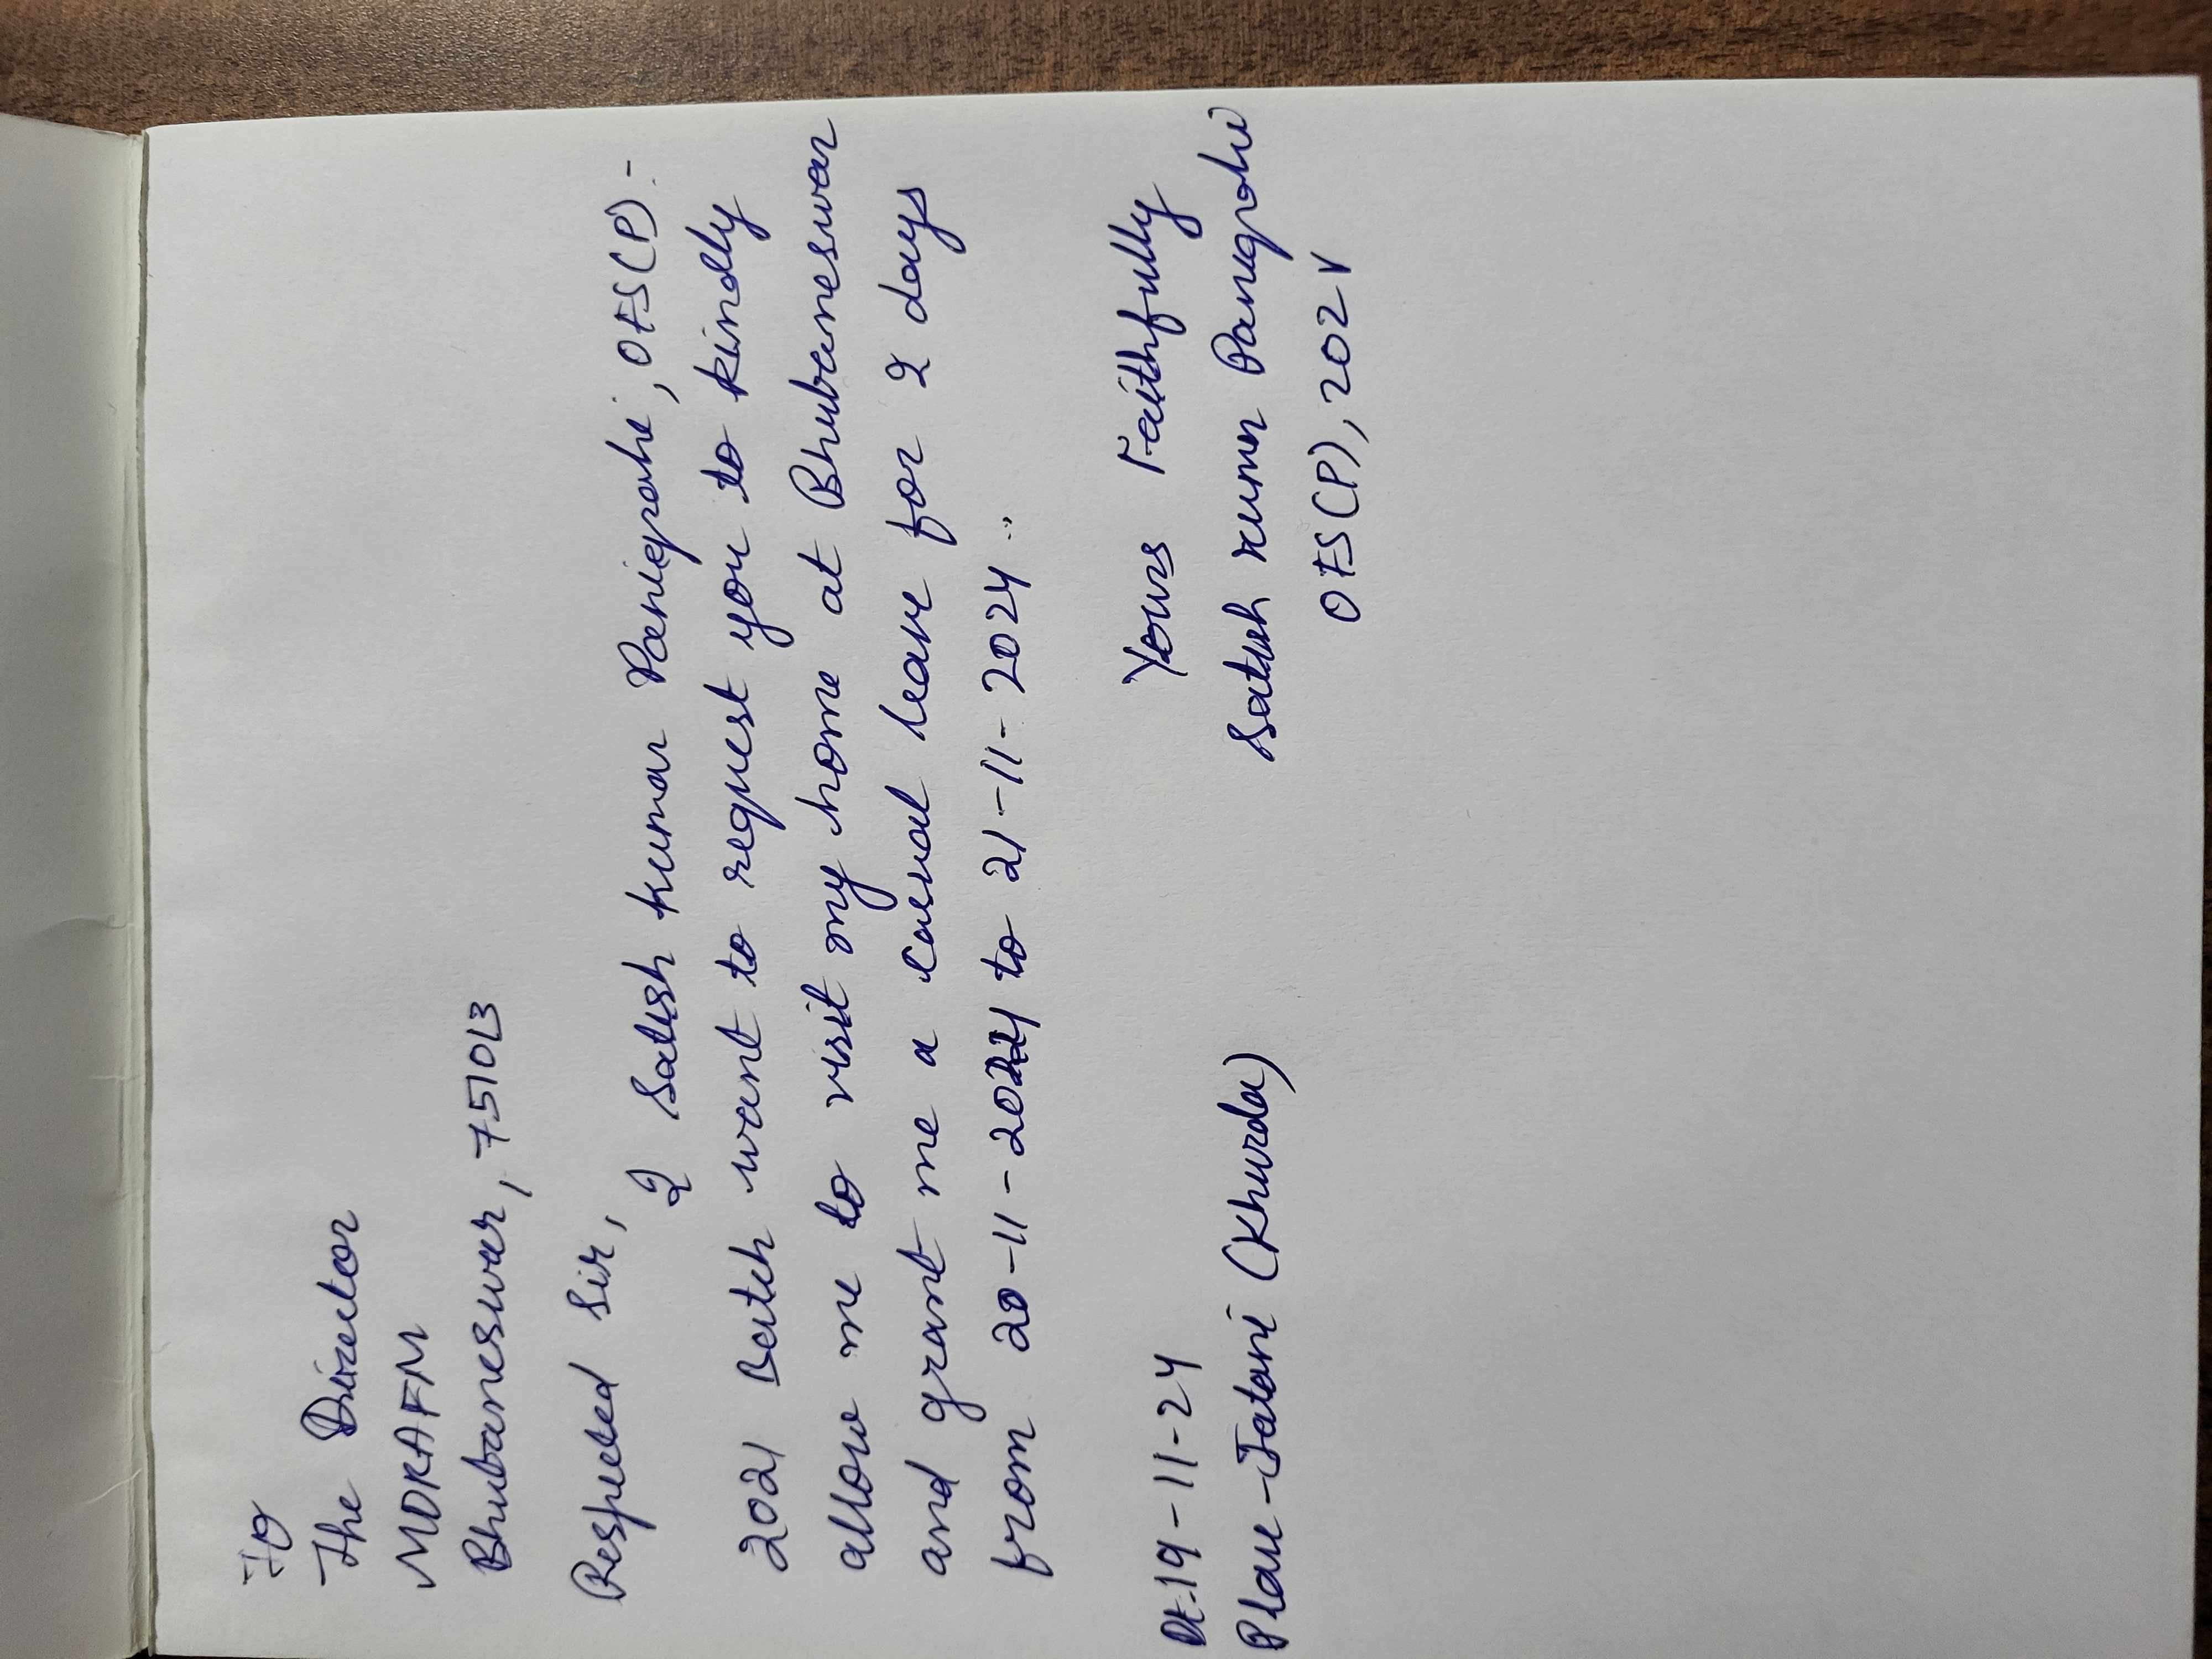 To
The Director
MDRAFM
Bhubaneswar, 751013
Respected Sir,
I Satish Kumar Panigrahi, OFS(P)-
2021 Batch want to request you to kindly
allow me to visit my home at Bhubaneswar
and grant me a casual leave for 2 days
from 20-11-2024 to 21-11-2024.
Yours Faithfully
Dt.19-11-24
Satish Kumar Panigrahi
Place-Jatani (Khurda)
OFS(P), 2021